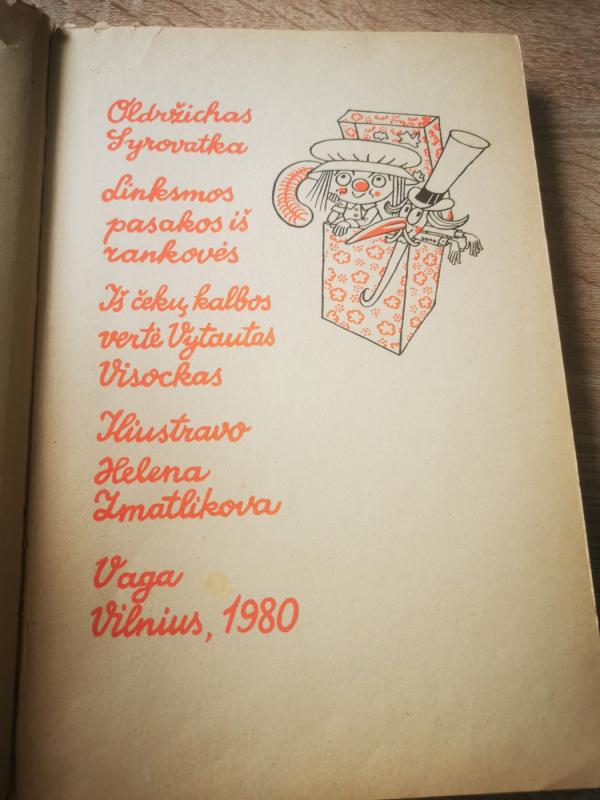 Oldržichas
Syrovatka
Linksmos
pasakos iš
rankovės
Iš čekų kalbos
vertė Vytautas
Visockas
Iliustravo
Helena
Zmatlikova
Vaga
Vilnius, 1980